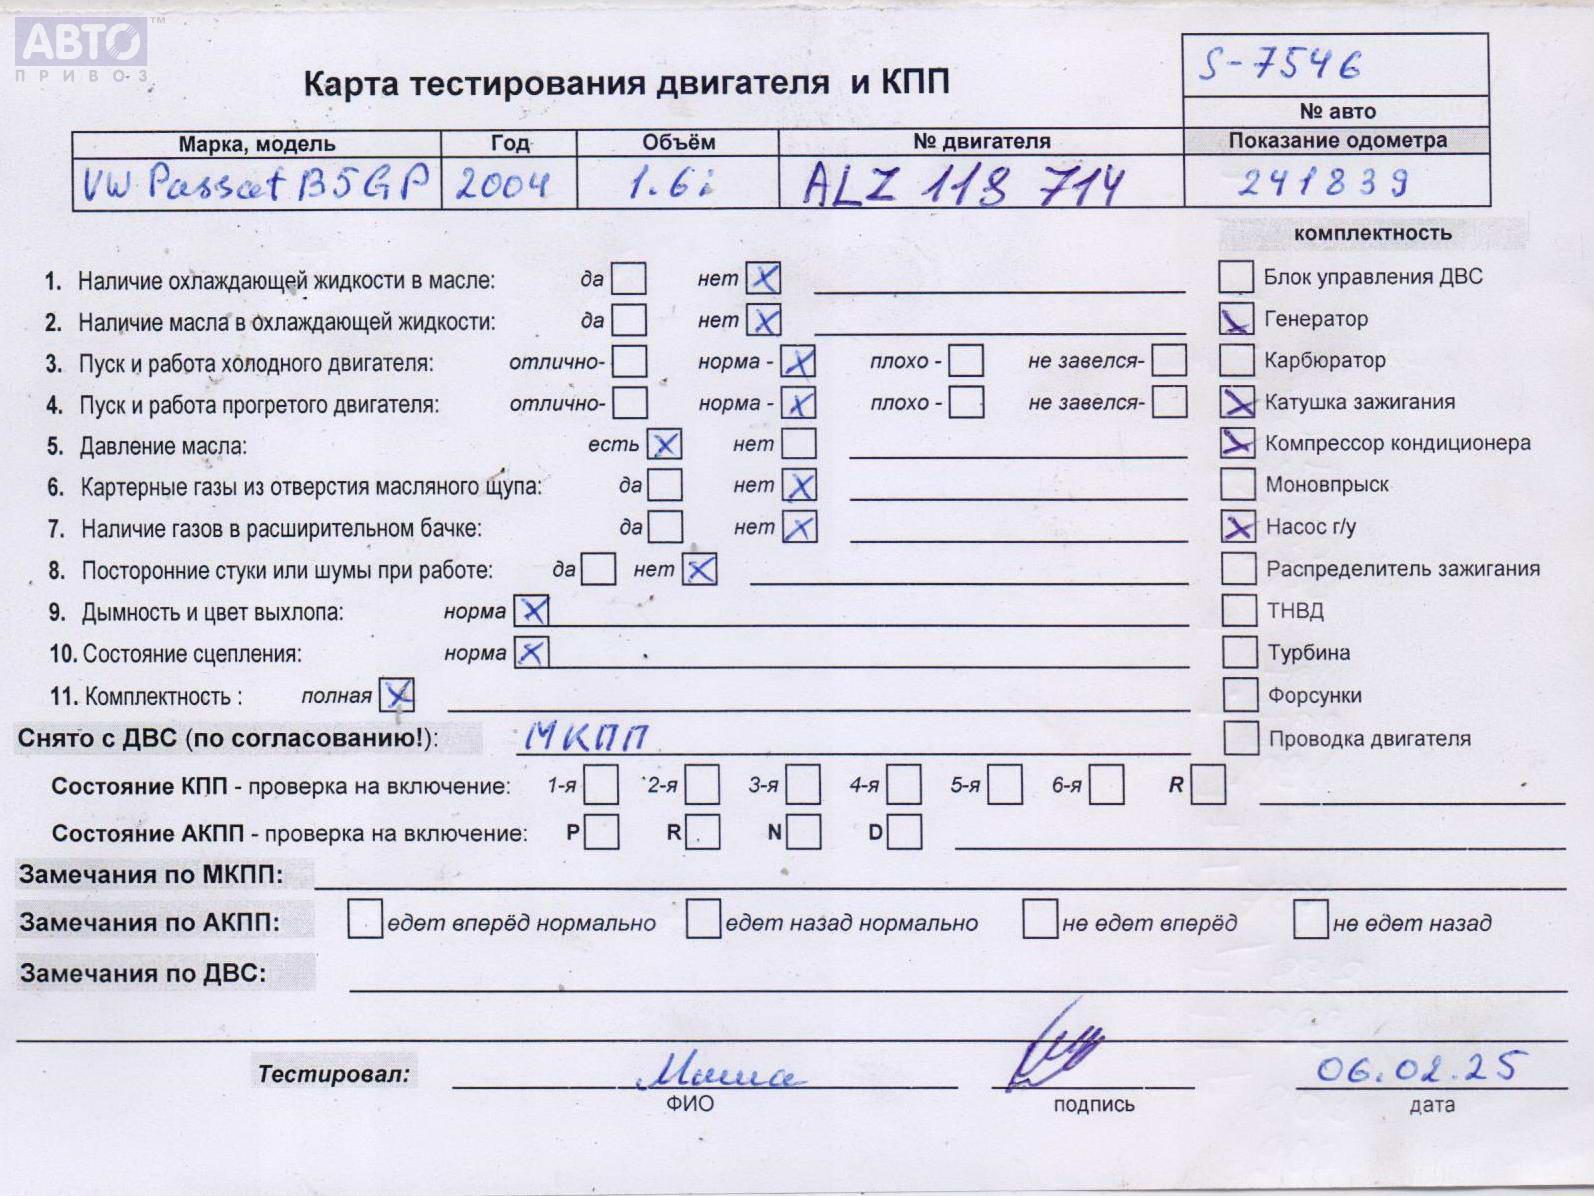 АВТО™
ПРИВОЗ
S-7546
Карта тестирования двигателя и КПП
№ авто
Марка, модель Год Объём № двигателя Показание одометра
VW Passat B5GP 2004 1.6i ALZ 119 714 241839
комплектность
1. Наличие охлаждающей жидкости в масле: да нет X Блок управления ДВС
2. Наличие масла в охлаждающей жидкости: да нет X X Генератор
3. Пуск и работа холодного двигателя: отлично- норма - X плохо - не завелся- Карбюратор
4. Пуск и работа прогретого двигателя: отлично- норма - X плохо - не завелся- X Катушка зажигания
5. Давление масла: есть X нет X Компрессор кондиционера
6. Картерные газы из отверстия масляного щупа: да нет X Моновпрыск
7. Наличие газов в расширительном бачке: да нет X X Насос г/у
8. Посторонние стуки или шумы при работе: да нет X Распределитель зажигания
9. Дымность и цвет выхлопа: норма X ТНВД
10. Состояние сцепления: норма X Турбина
11. Комплектность : полная X Форсунки
Снято с ДВС (по согласованию!): МКПП Проводка двигателя
Состояние КПП - проверка на включение: 1-я 2-я 3-я 4-я 5-я 6-я R
Состояние АКПП - проверка на включение: P R N D
Замечания по МКПП:
Замечания по АКПП: едет вперёд нормально едет назад нормально не едет вперёд не едет назад
Замечания по ДВС:
Тестировал: 06.02.25
ФИО подпись дата